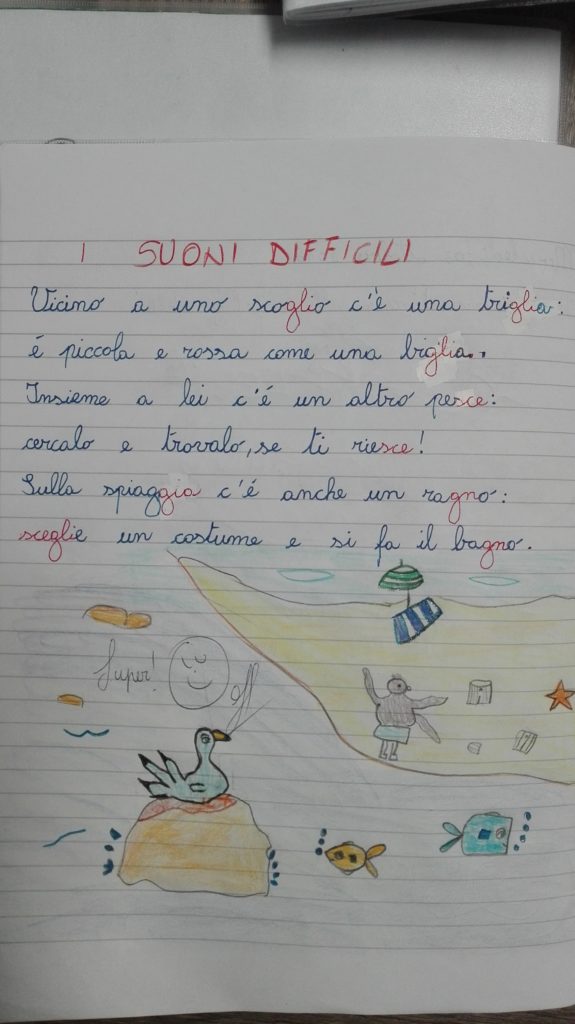 I SUONI DIFFICILI
Vicino a uno scoglio c'è una triglia:
é piccola e rossa come una biglia..
Insieme a lei c'é un altro pesce:
cercalo e trovalo, se ti riesce!
Sulla spiaggia c'é anche un ragno:
sceglie un costume e si fa il bagno.
Super!